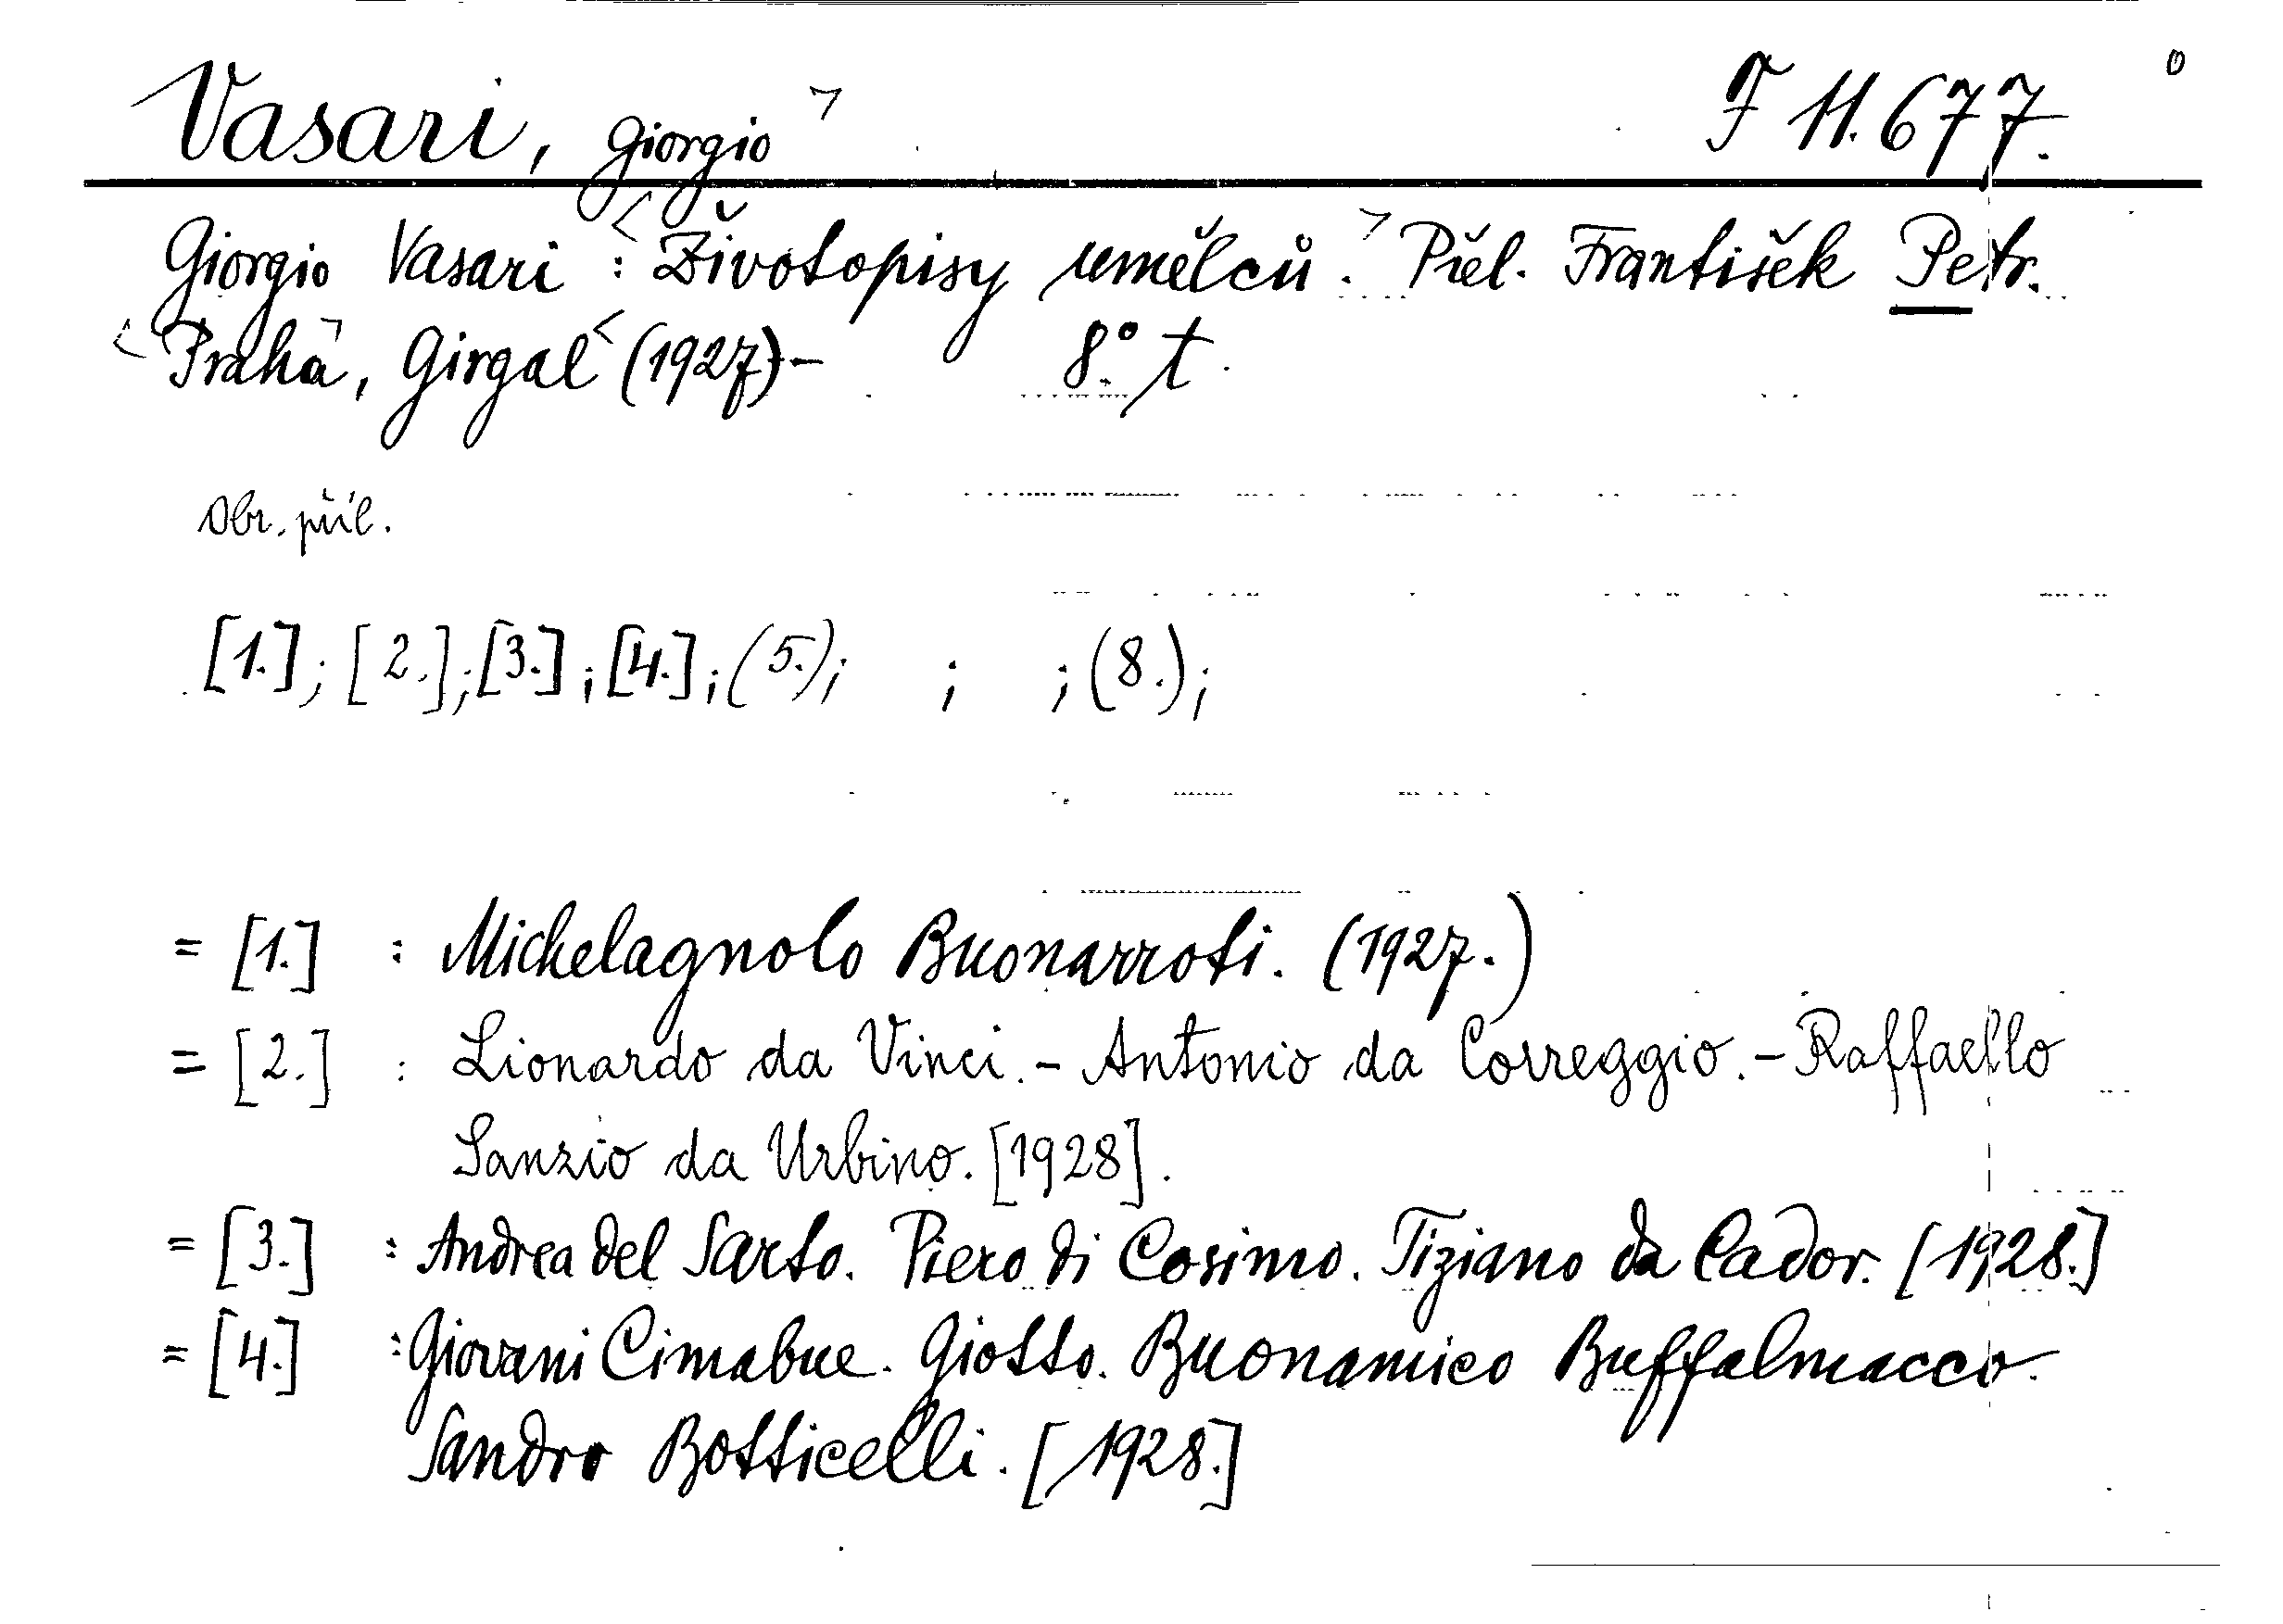 Vasari, Giorgio > F 11.677. 0
Giorgio Vasari : <Životopisy umělců.> Přel. František Petr.
<Praha>, Girgal <(1927)- 8.° t.
Obr. příl.
[1.]; [2.]; [3.]; [4.]; (5.); ; ; (8.);
= [1.] : Michelagnolo Buonarroti. (1927.)
= [2.] : Lionardo da Vinci. - Antonio da Correggio. - Raffaello
Sanzio da Urbino. [1928].
= [3.] : Andrea del Sarto. Piero di Cosimo. Tiziano da Cador. [1928.]
= [4.] : Giovani Cimabue. Giotto. Buonamico Buffalmacco.
Sandro Botticelli. [1928.]